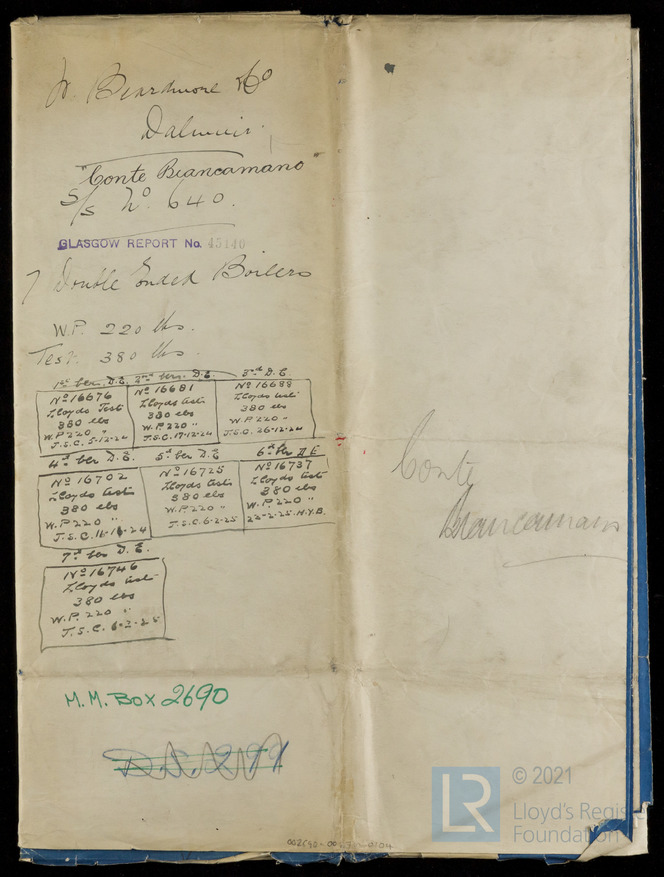 W. Beardmore & Co
Dalmuir.
"Conte Biancamano"
S/S No. 640.
GLASGOW REPORT No. 45140
7 Double Ended Boilers
W.P. 220 lbs.
Test. 380 lbs.
1st ber. D.E.
No 16676
Lloyds Test
380 lbs
W.P. 220 "
J.S.C. 5-12-24
2nd ber. D.E.
No 16681
Lloyds test
380 lbs
W.P. 220 "
J.S.C. 17-12-24
3rd D.E.
No 16688
Lloyds test
380 lbs
W.P. 220 "
J.S.C. 26-12-24
4th ber D.E.
No 16702
Lloyds test
380 lbs
W.P. 220 "
J.S.C.
5th ber D.E
No 16725
Lloyds test
380 lbs
W.P. 220 "
J.S.C. 6-2-25
6th ber D.E
No 16737
Lloyds test
380 lbs
W.P. 220 "
22-2-25. H.Y.B.
7th ber D.E.
No 16746
Lloyds test
380 lbs
W.P. 220 "
J.S.C. 6-3-25
Conte
Biancamano
M.M. BOX 2690
LR
© 2021
Lloyd's Register
Foundation